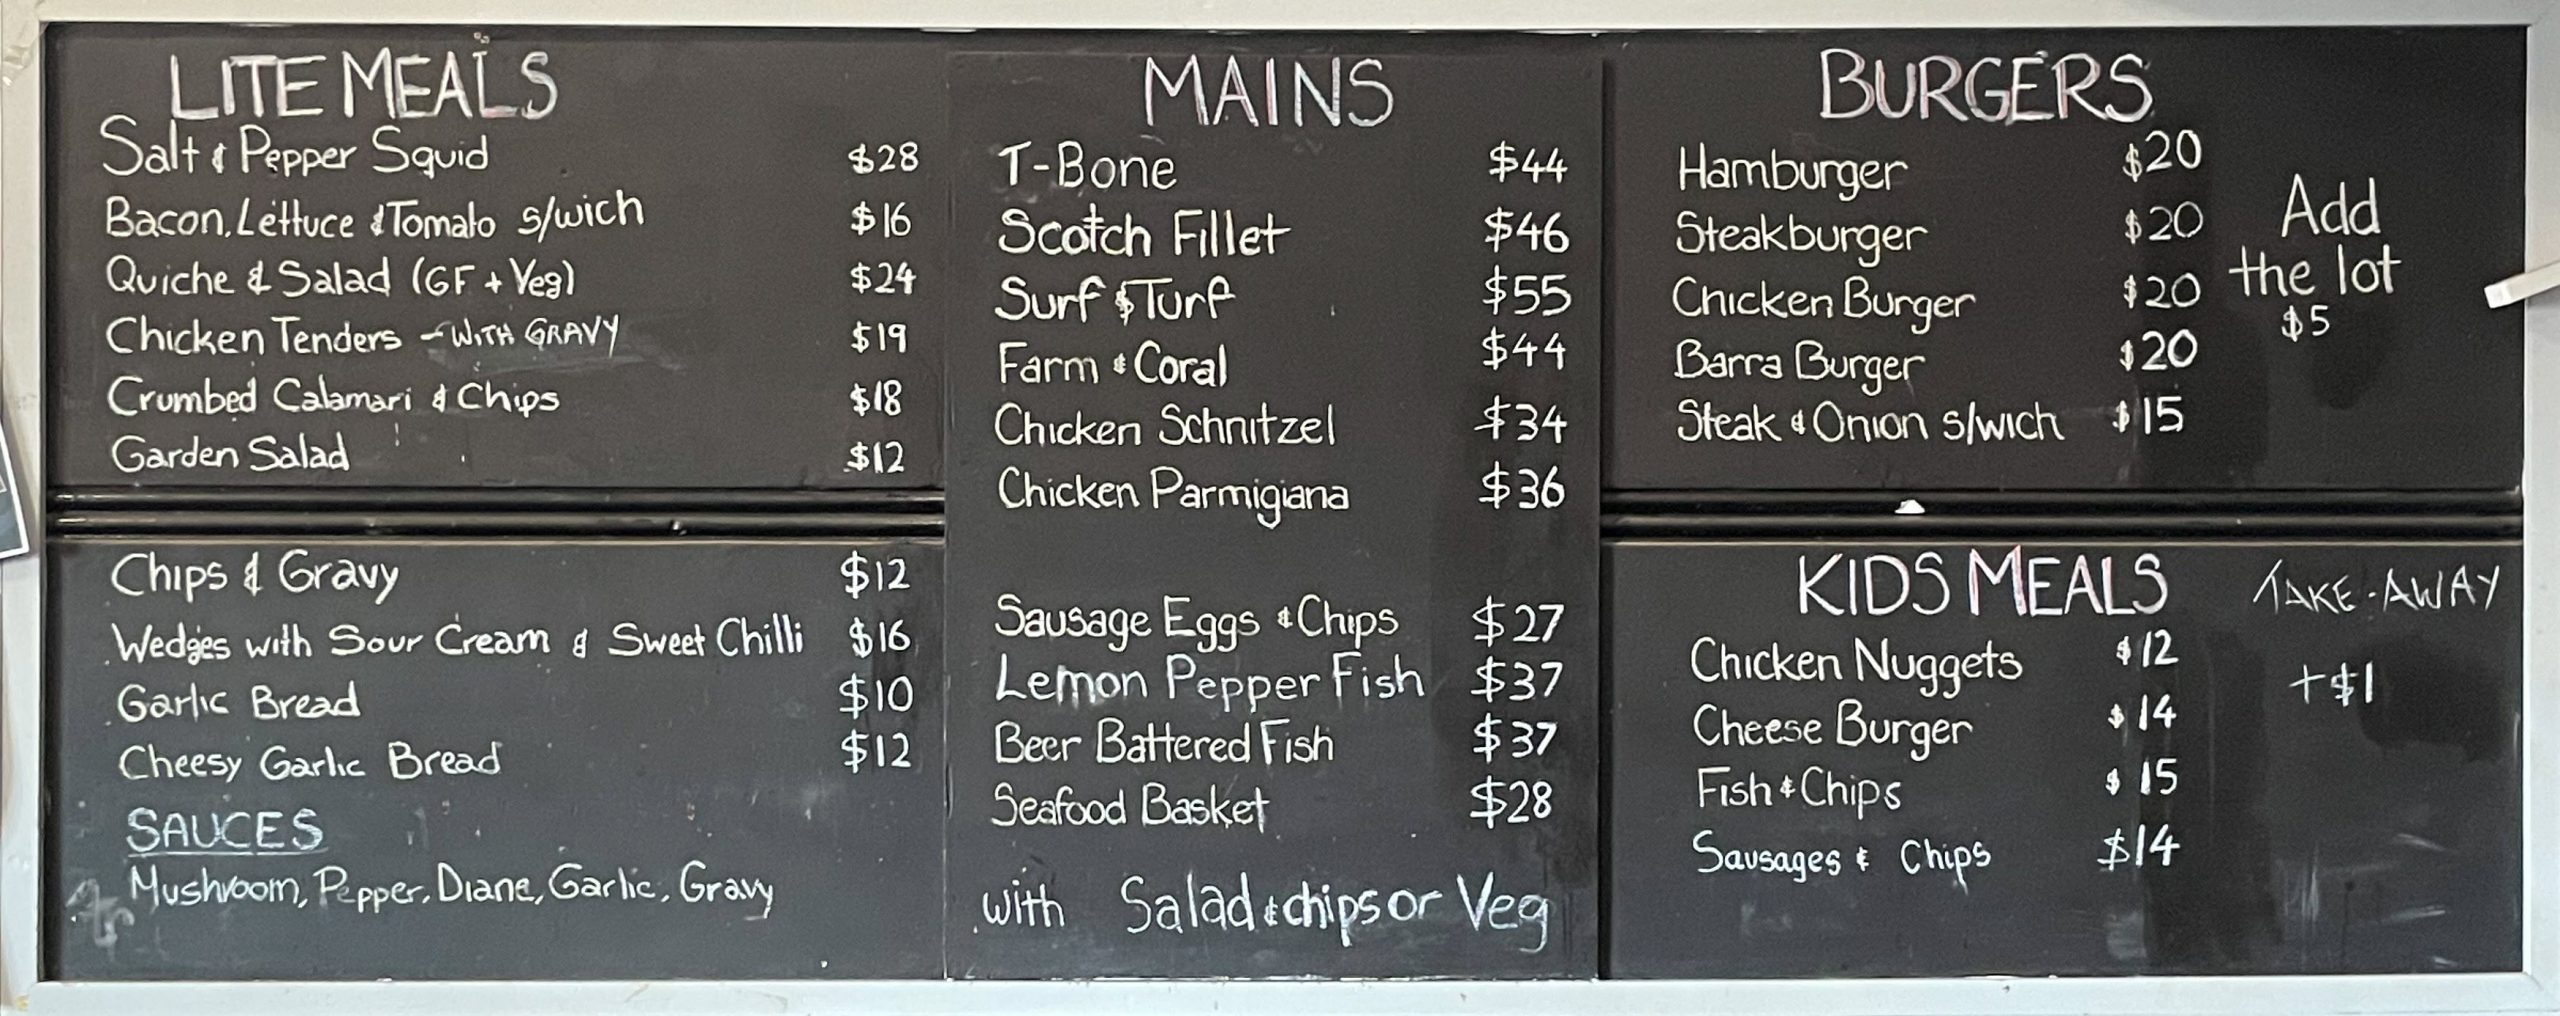 LITE MEALS
Salt & Pepper Squid $28
Bacon, Lettuce & Tomato s/wich $16
Quiche & Salad (GF + Veg) $24
Chicken Tenders - WITH GRAVY $19
Crumbed Calamari & Chips $18
Garden Salad $12
Chips & Gravy $12
Wedges with Sour Cream & Sweet Chilli $16
Garlic Bread $10
Cheesy Garlic Bread $12
SAUCES
Mushroom, Pepper, Diane, Garlic, Gravy
MAINS
T-Bone $44
Scotch Fillet $46
Surf & Turf $55
Farm & Coral $44
Chicken Schnitzel $34
Chicken Parmigiana $36
Sausage Eggs & Chips $27
Lemon Pepper Fish $37
Beer Battered Fish $37
Seafood Basket $28
with Salad & chips or Veg
BURGERS
Hamburger $20
Steakburger $20
Chicken Burger $20
Barra Burger $20
Steak & Onion s/wich $15
Add
the lot
$5
KIDS MEALS
Chicken Nuggets $12
Cheese Burger $14
Fish & Chips $15
Sausages & Chips $14
TAKE-AWAY
+$1